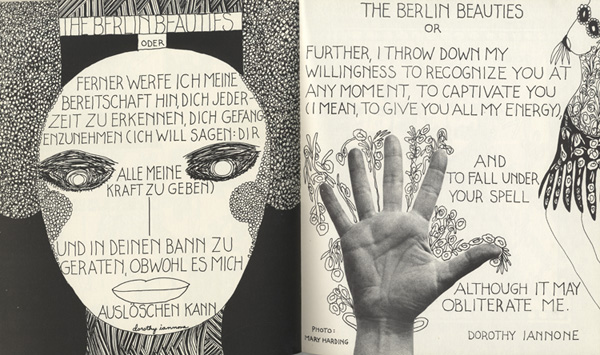 THE BERLIN BEAUTIES
ODER
FERNER WERFE ICH MEINE
BEREITSCHAFT HIN, DICH JEDER-
ZEIT ZU ERKENNEN, DICH GEFANG
ENZUNEHMEN (ICH WILL SAGEN: DIR
ALLE MEINE
KRAFT ZU GEBEN)
UND IN DEINEN BANN ZU
GERATEN, OBWOHL ES MICH
AUSLÖSCHEN KANN
dorothy iannone
THE BERLIN BEAUTIES
OR
FURTHER, I THROW DOWN MY
WILLINGNESS TO RECOGNIZE YOU AT
ANY MOMENT, TO CAPTIVATE YOU
(I MEAN, TO GIVE YOU ALL MY ENERGY),
AND
TO FALL UNDER
YOUR SPELL
ALTHOUGH IT MAY
OBLITERATE ME.
PHOTO:
MARY HARDING
DOROTHY IANNONE